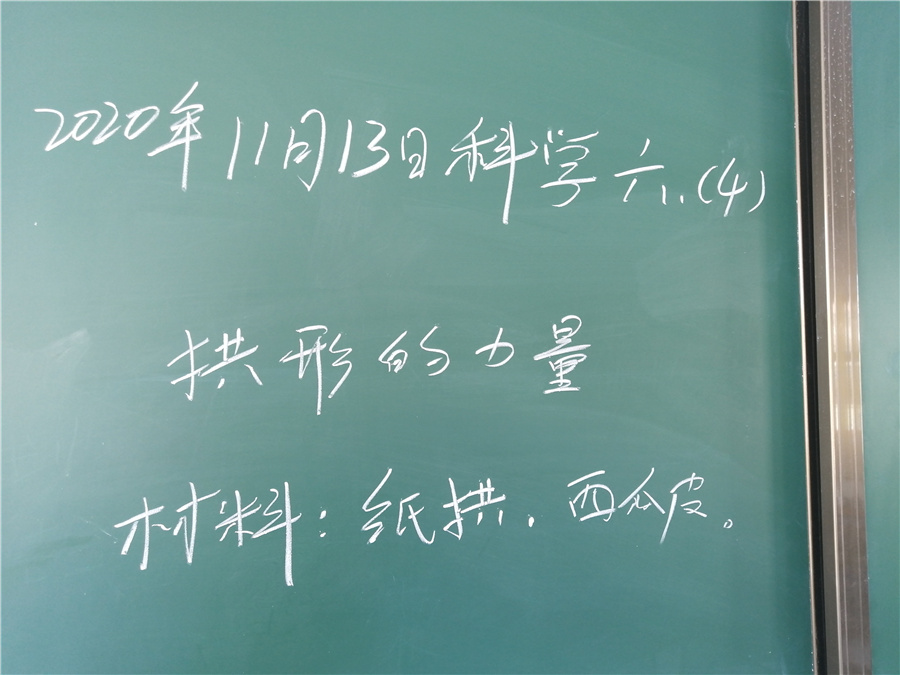 2020年11月13日科学六.(4)
拱形的力量
材料:纸拱.西瓜皮。